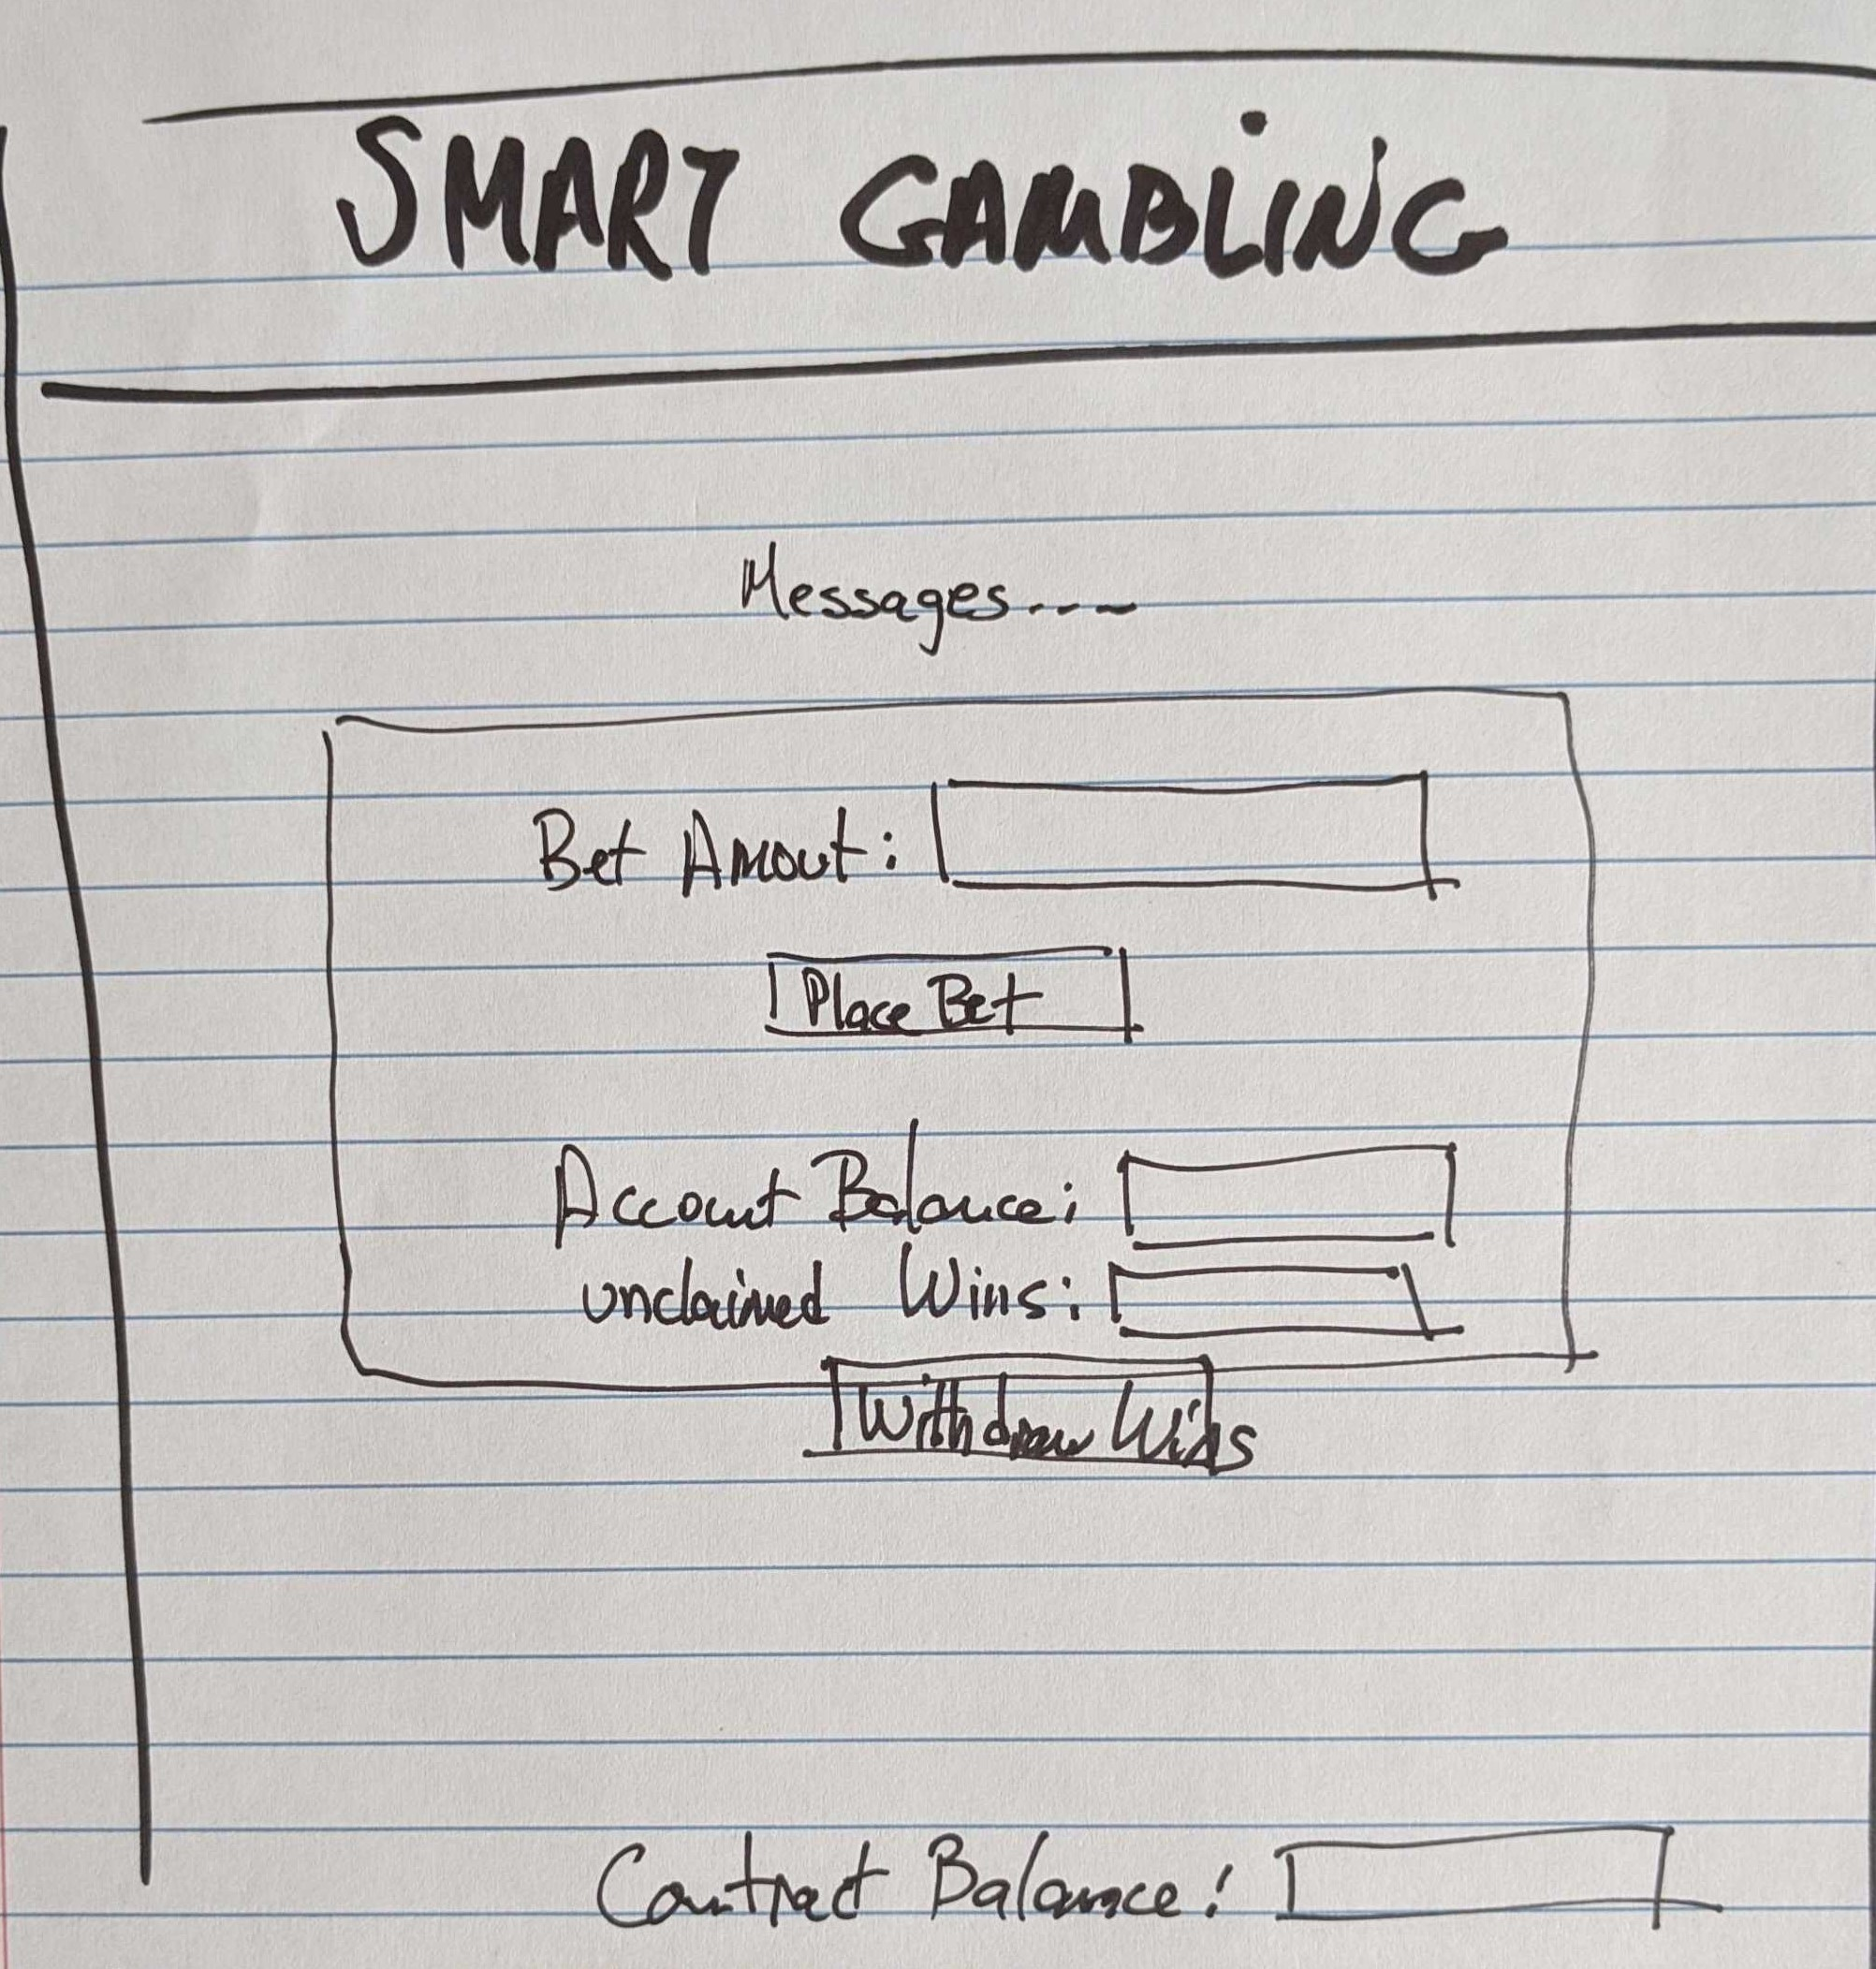 SMART GAMBLING
Messages....
Bet Amout:
Place Bet
Account Balance:
unclaimed Wins:
Withdraw Wins
Contract Balance: